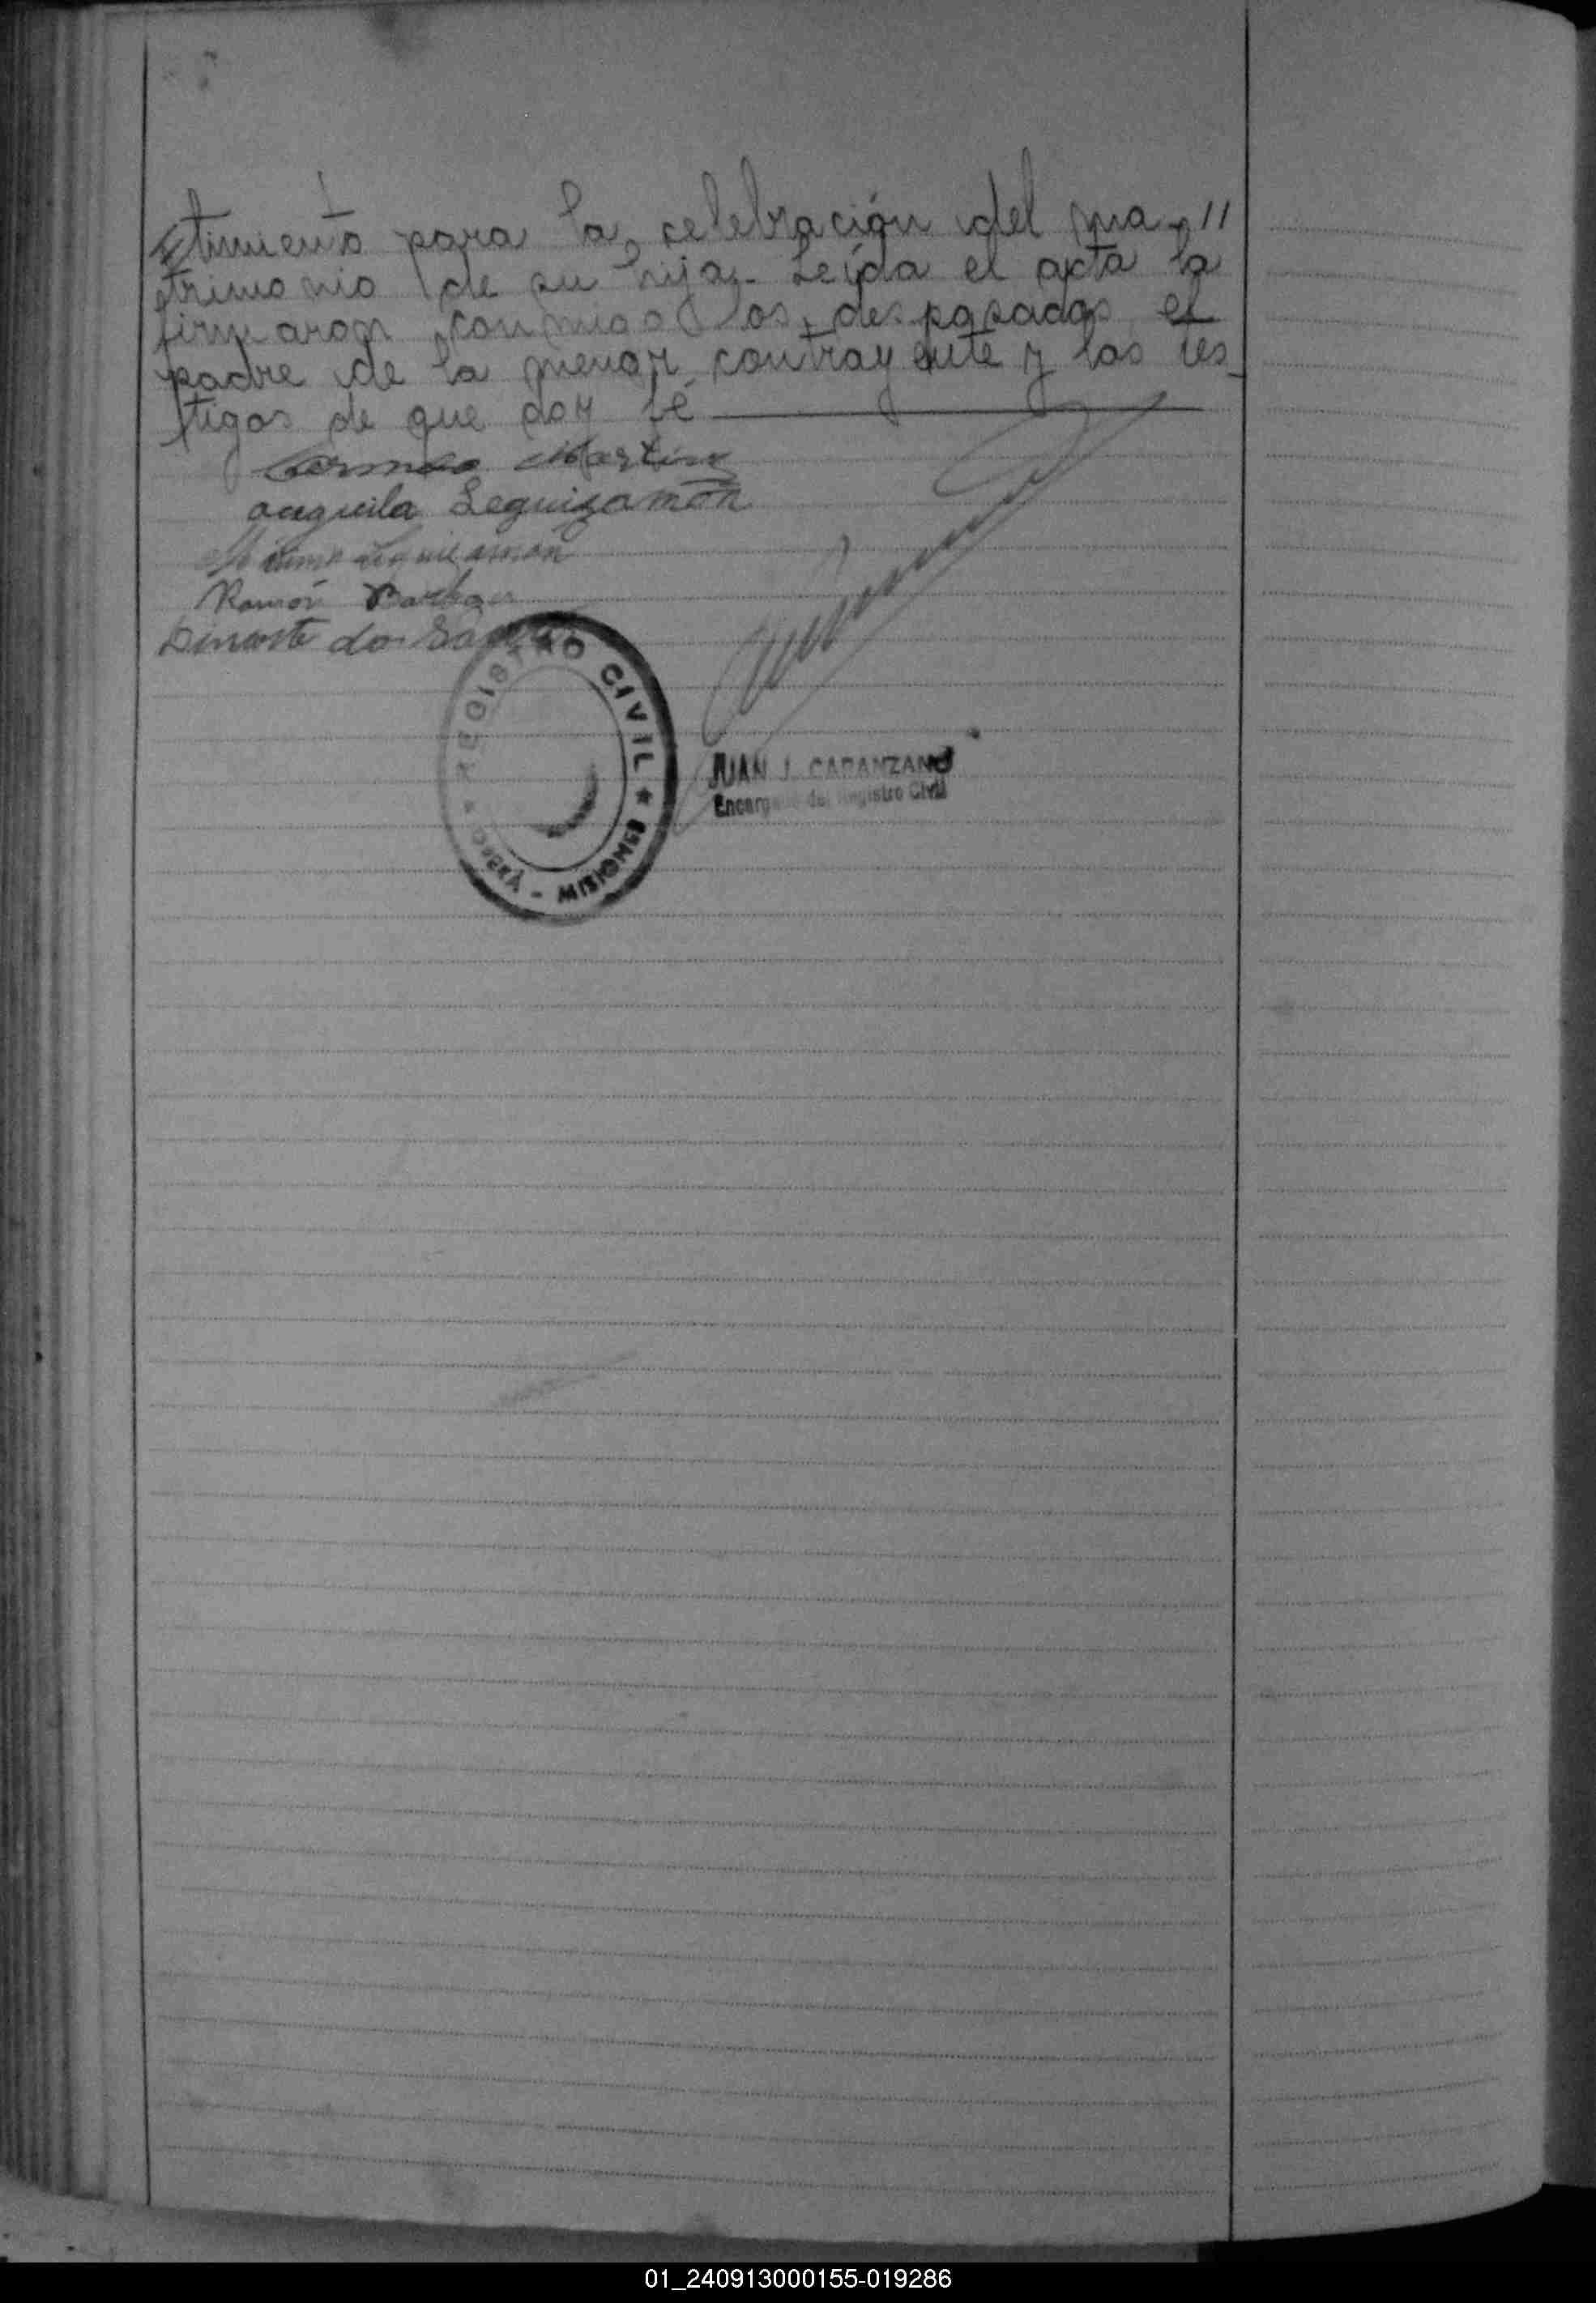 timiento para la celebración del ma-//
trimonio de su hija.- Leída el acta la
firmaron conmigo los desposados, el
padre de la menor contrayente y los tes-
tigos de que doy fé
Martinz
auguila Leguizamón
Leguizamón
Ramón Barboza
dos Santos
REGISTRO CIVIL
* OBERÁ - MISIONES *
JUAN J. CAPANZANO
Encargado del Registro Civil
01_240913000155-019286